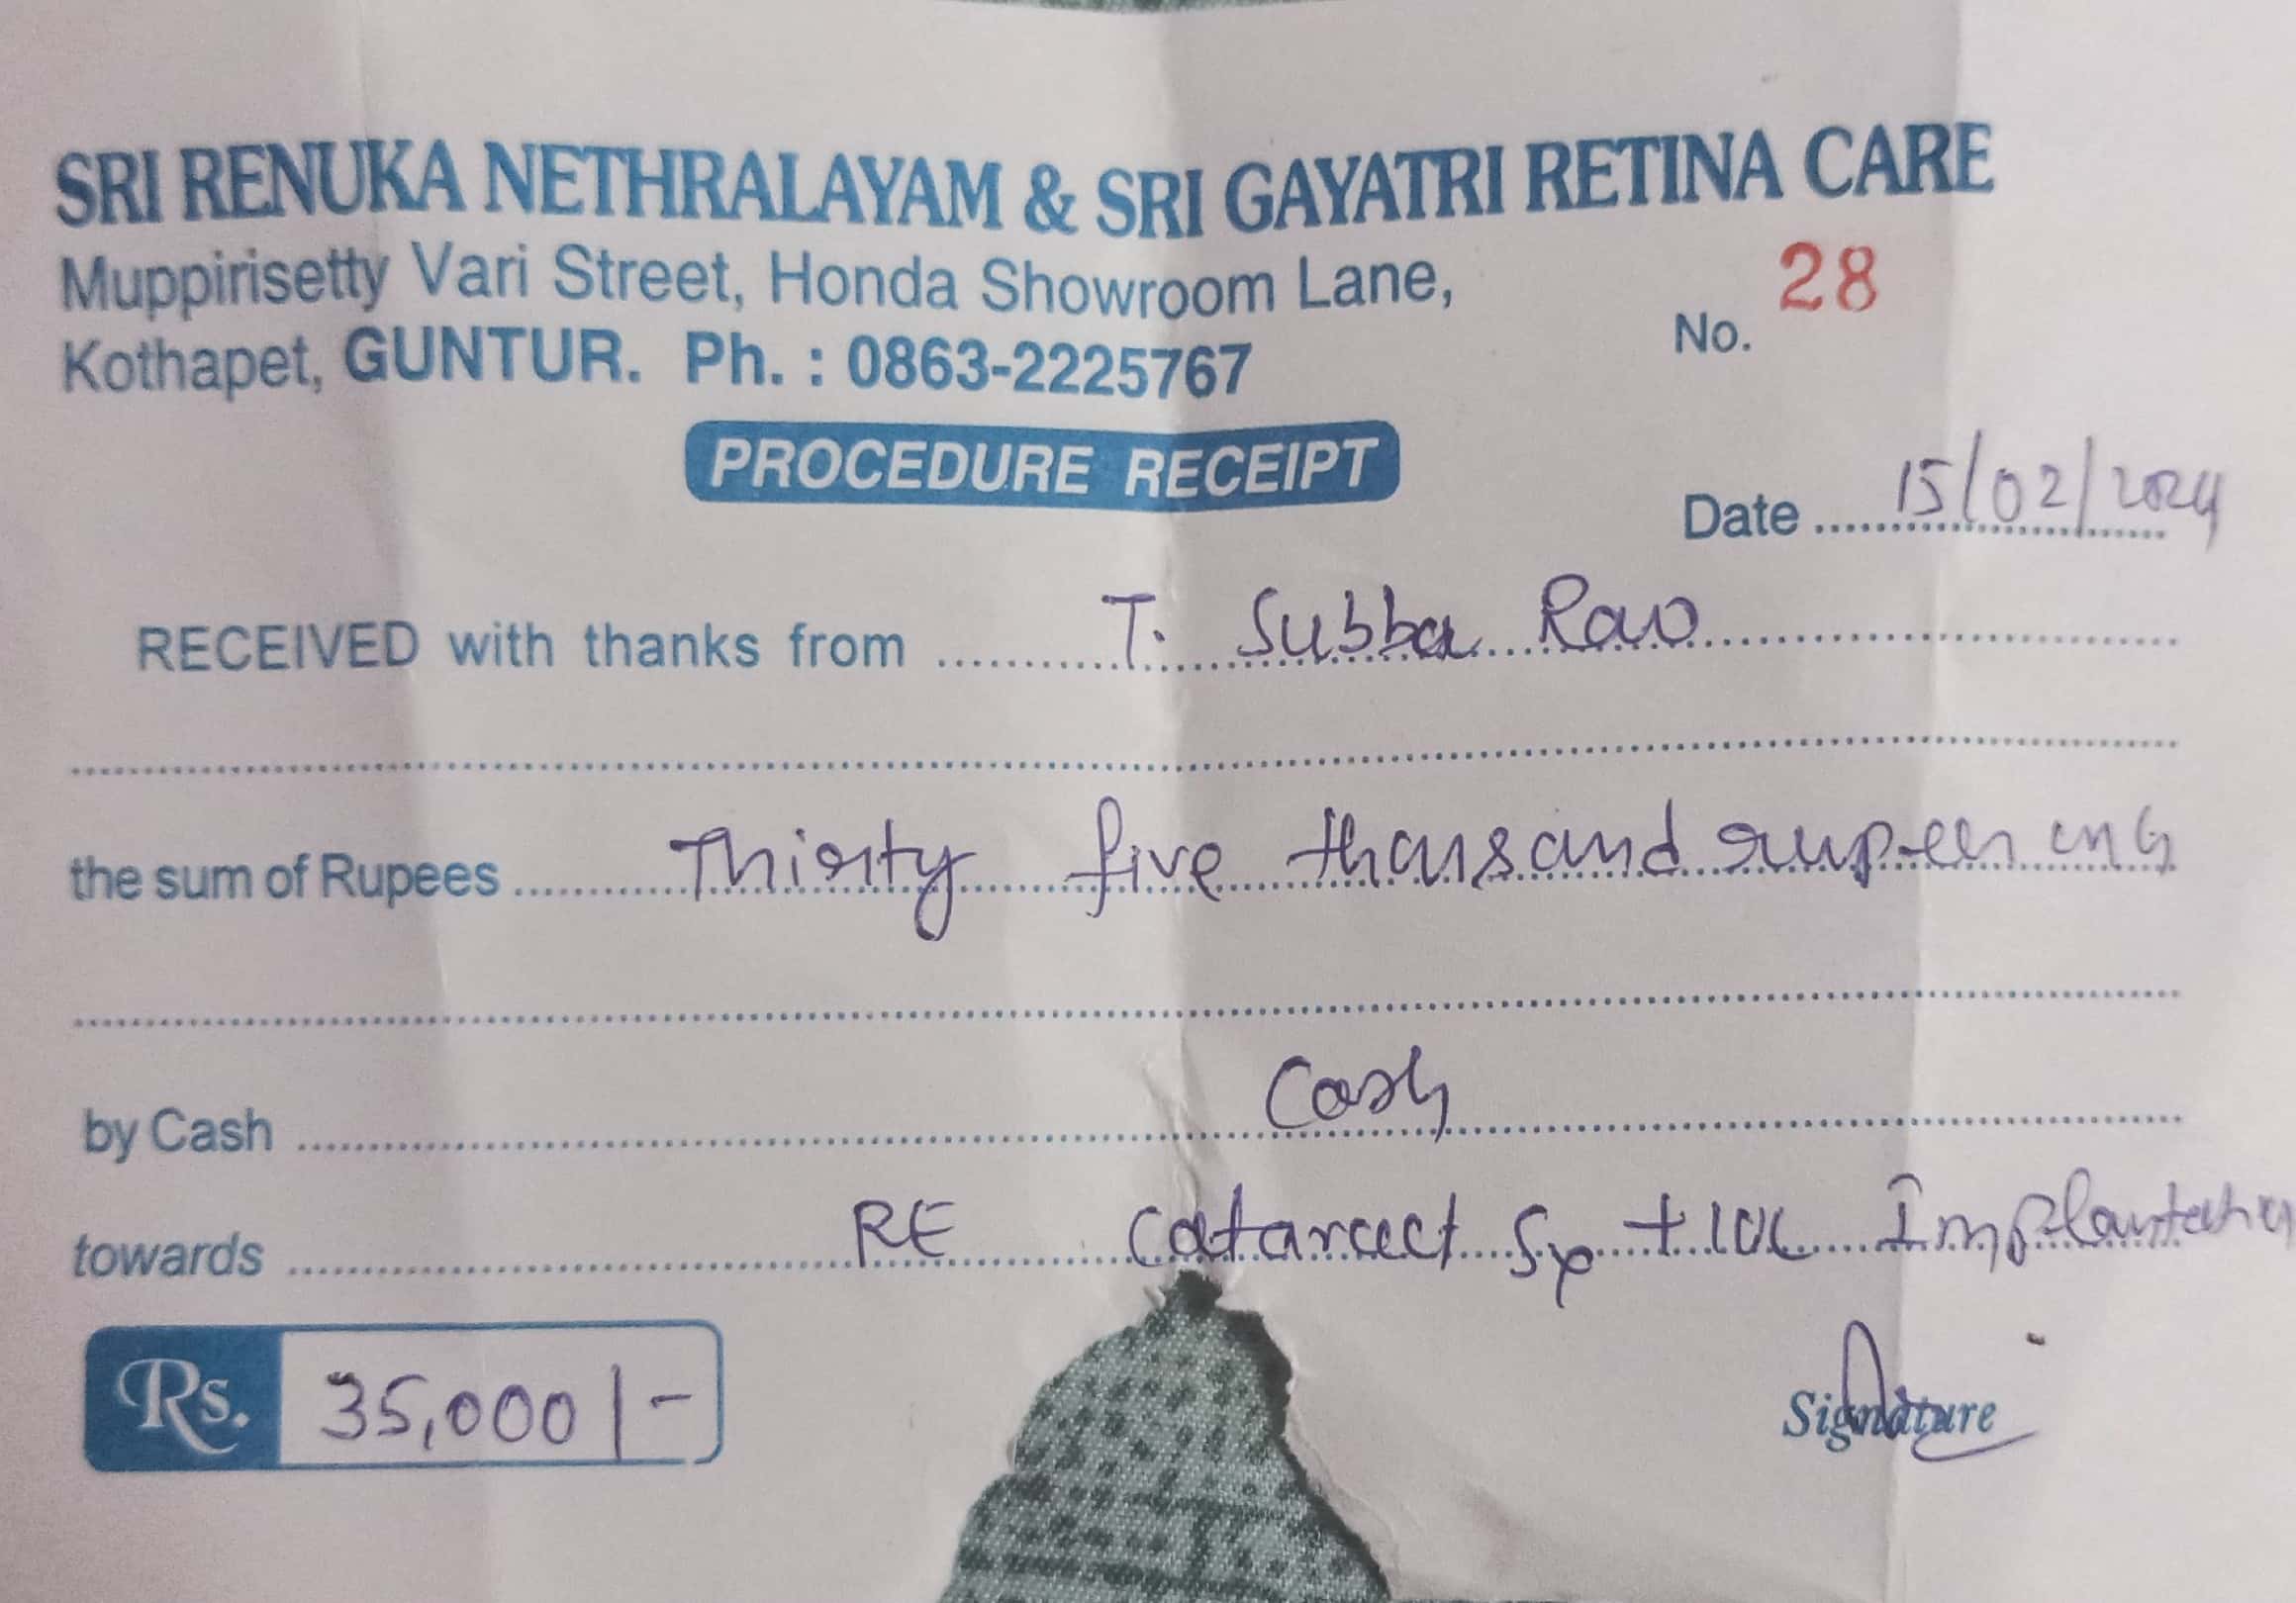 SRI RENUKA NETHRALAYAM & SRI GAYATRI RETINA CARE
Muppirisetty Vari Street, Honda Showroom Lane,
Kothapet, GUNTUR. Ph. : 0863-2225767
No. 28
PROCEDURE RECEIPT
Date 15/02/2024
RECEIVED with thanks from T. Subba Rao
the sum of Rupees Thirty five thousand rupees only
by Cash Cash
towards RE Catarcect Sx + IOL Implantation
Rs. 35,000/-
Signature